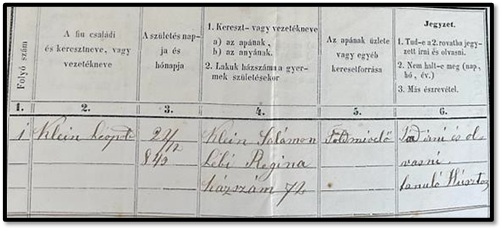 Folyó szám
A fiu családi
és keresztneve, vagy
vezetékneve
A születés nap-
ja és
hónapja
1. Kereszt- vagy vezetékneve
a) az apának,
b) az anyának.
2. Lakuk házszáma a gyer-
mek születésekor
Az apának üzlete
vagy egyéb
keresetforrása
Jegyzet.
1. Tud-e a 2. rovatba jegy-
zett irni és olvasni.
2. Nem halt-e meg (nap,
hó, év.)
3. Más észrevétel.
1. 2. 3. 4. 5. 6.
1 Klein Lipót 21/12 Klein Salamon Földmivelő Tud irni és ol
849 Lébi Regina vasni
házszám 72 tanuló